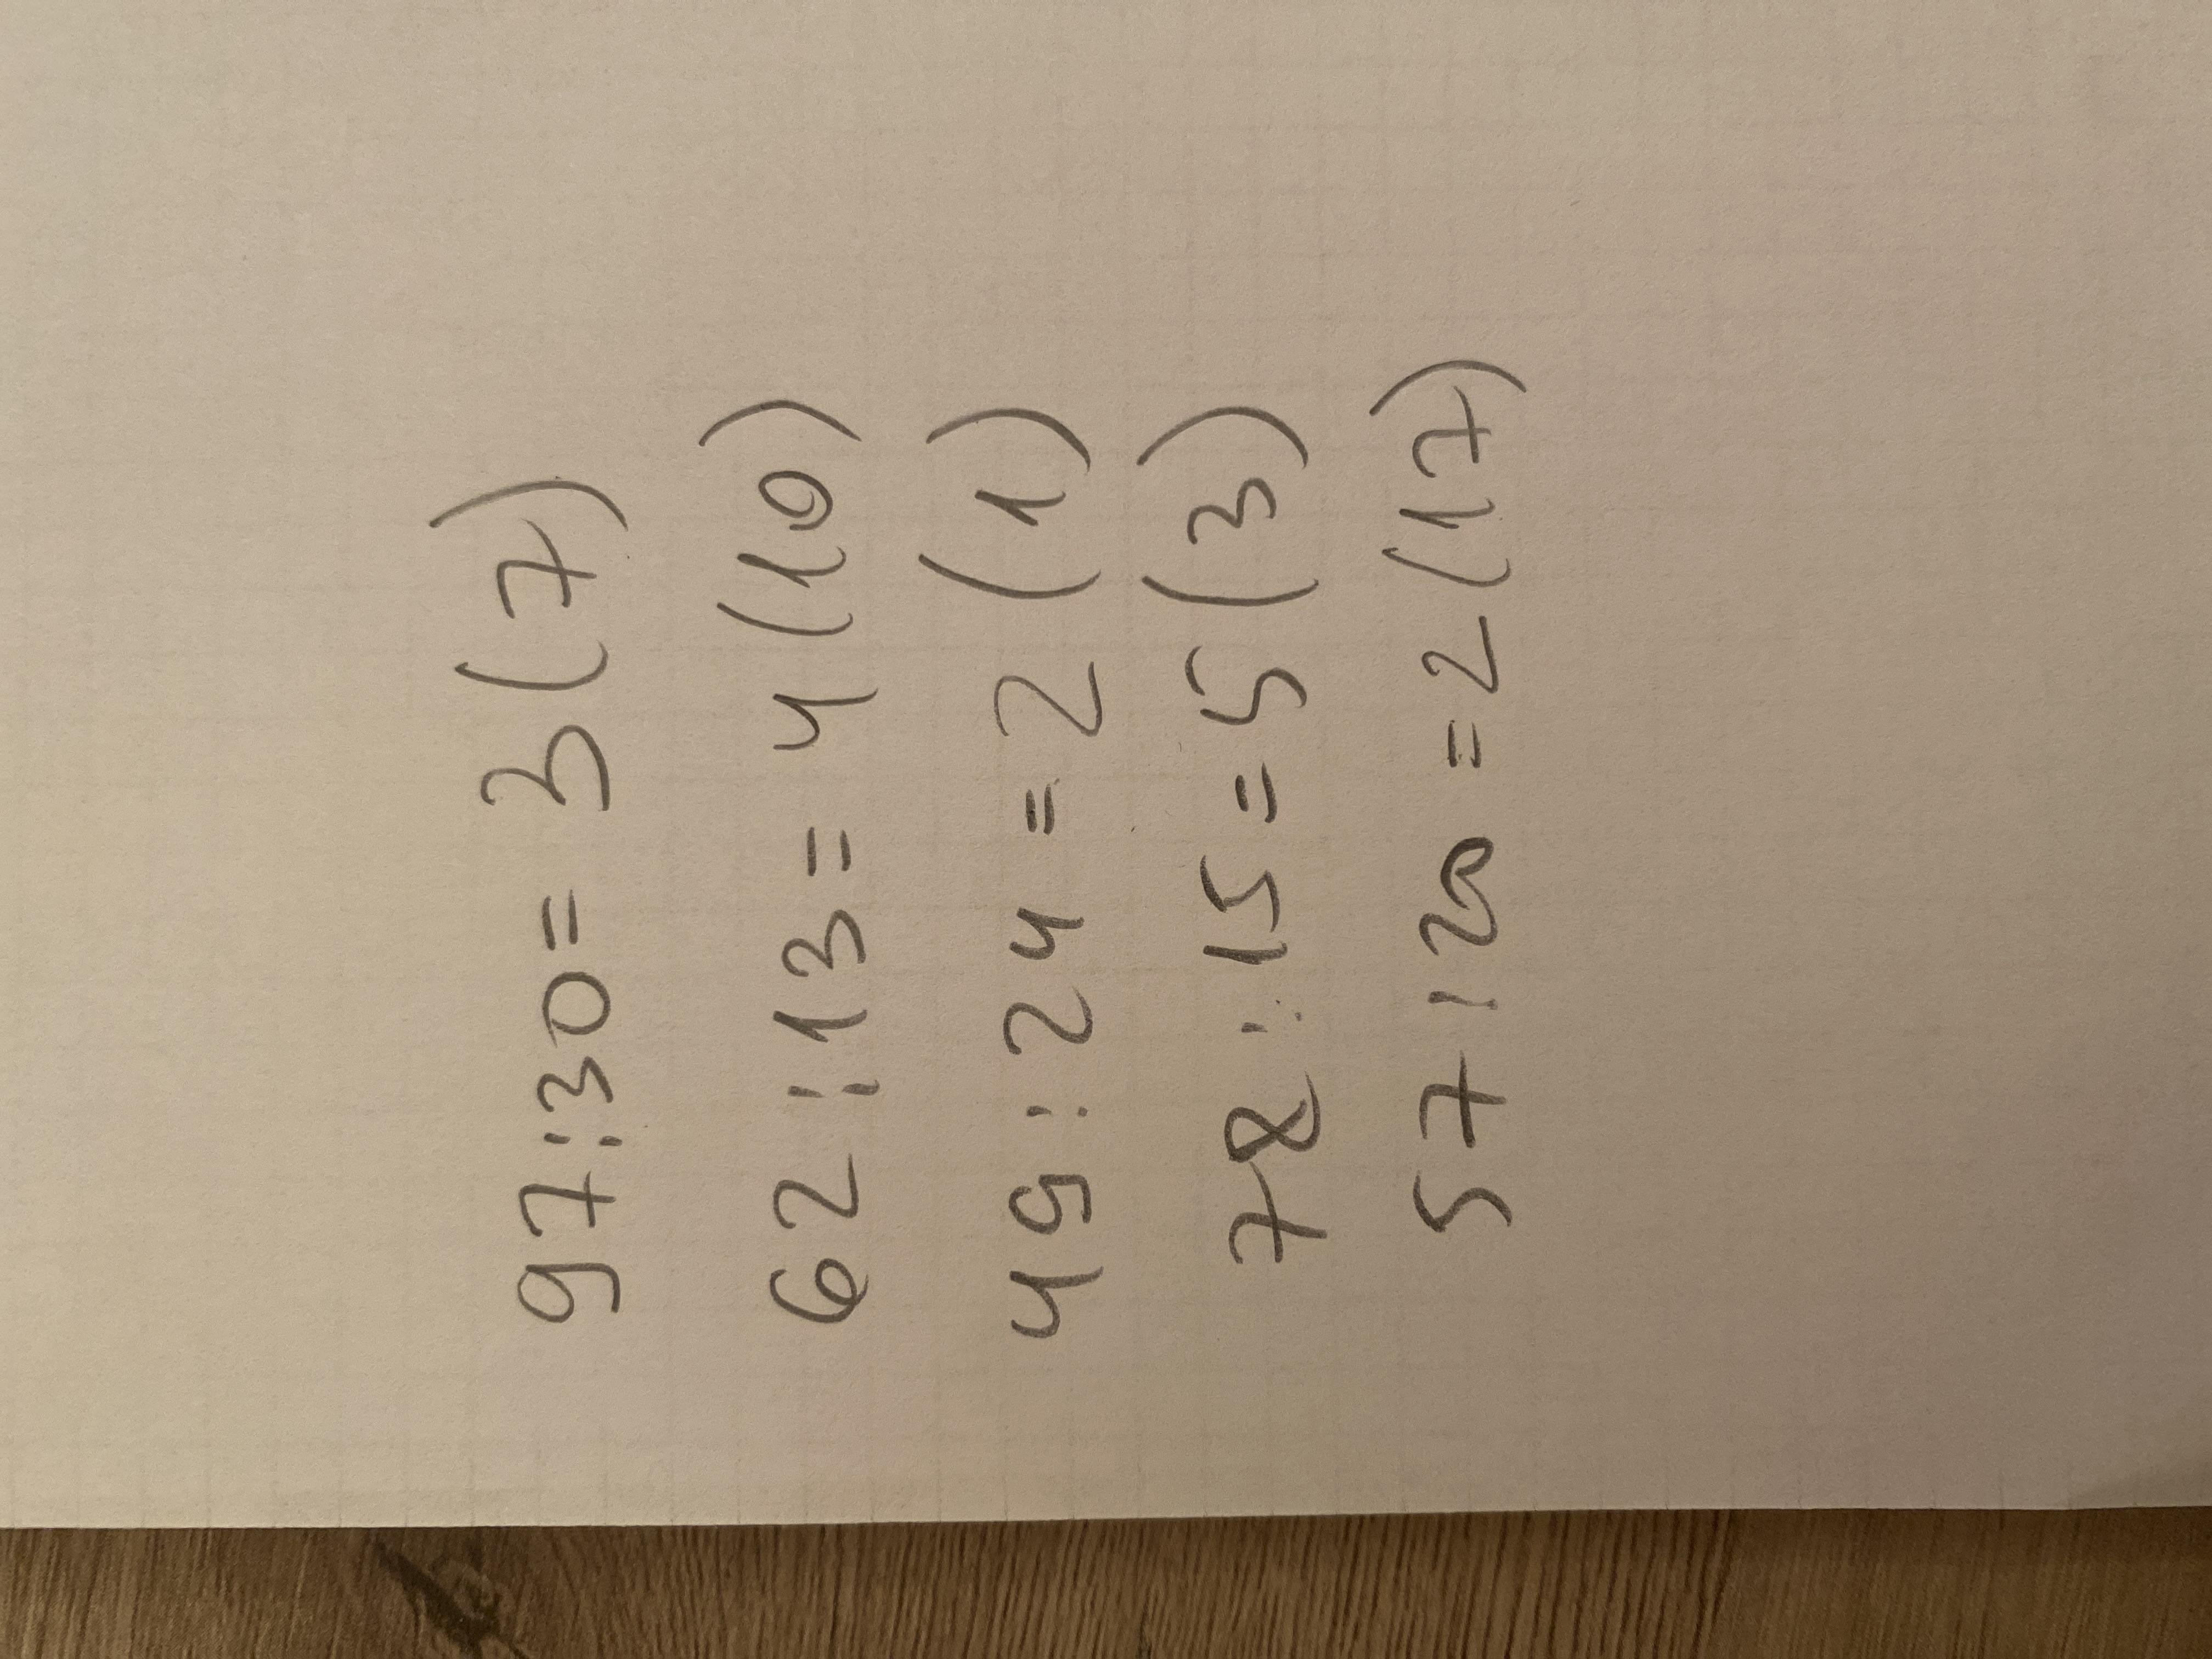 97:30=3(7)
62:13=4(10)
49:24=2(1)
78:15=5(3)
57:20=2(17)